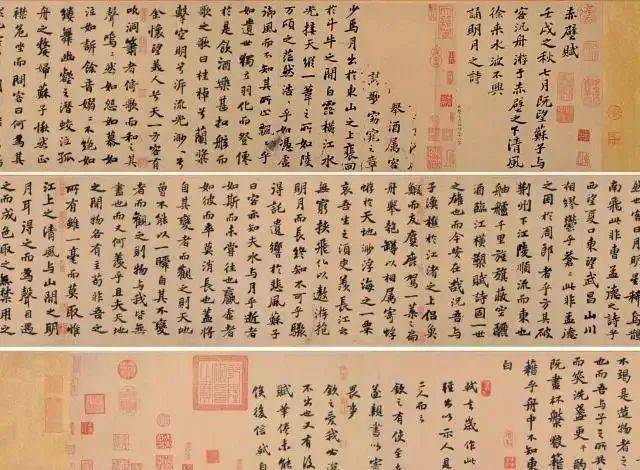 赤壁賦
壬戌之秋七月既望蘇子與
客泛舟游于赤壁之下清風
徐來水波不興
誦明月之詩
舉酒屬客
歌窈窕之章
少焉月出於東山之上裵回
於斗牛之間白露橫江水
光接天縱一葦之所如陵
萬頃之茫然浩浩乎如馮虛
御風而不知其所止飄飄乎
如遺世獨立羽化而登僊
於是飲酒樂甚扣舷而
歌之歌曰桂棹兮蘭槳
擊空明兮泝流光渺渺兮
余懷望美人兮天一方客有
吹洞簫者倚歌而和之其
聲嗚嗚然如怨如慕如
泣如訴餘音嫋嫋不絕如
縷舞幽壑之潛蛟泣孤
舟之嫠婦蘇子愀然正
襟危坐而問客曰何為其
然也客曰月明星稀烏鵲
南飛此非孟德之詩乎
西望夏口東望武昌山川
相繆鬱乎蒼蒼此非孟德
之困於周郎者乎方其破
荊州下江陵順流而東也
舳艫千里旌旗蔽空釃
酒臨江橫槊賦詩固一世
之雄也而今安在哉況吾與
子漁樵於江渚之上侶魚
鰕而友麋鹿駕一葉之扁
舟舉匏樽以相屬寄蜉
蝣於天地渺浮海之一粟
哀吾生之須臾羨長江之
無窮挾飛仙以遨遊抱
明月而長終知不可乎驟
得託遺響於悲風蘇子
曰客亦知夫水與月乎逝者
如斯而未嘗往也贏虛者
如彼而卒莫消長也蓋將
自其變者而觀之則天地
曾不能以一瞬自其不變
者而觀之則物與我皆無
盡也而又何羨乎且夫天地
之間物各有主苟非吾之
所有雖一毫而莫取惟
江上之清風與山間之明
月耳得之而為聲目遇
之而成色取之無禁用之
不竭是造物者之
也而吾與子之所
而笑洗盞更酌
既盡杯槃狼籍
藉乎舟中不知東
白
軾去歲作此
輕出以示人見
一二人而已
欽之有使至
遂親書以
畏事
欽之愛我必
不出也又有後
賦筆倦未能
俟後信軾白